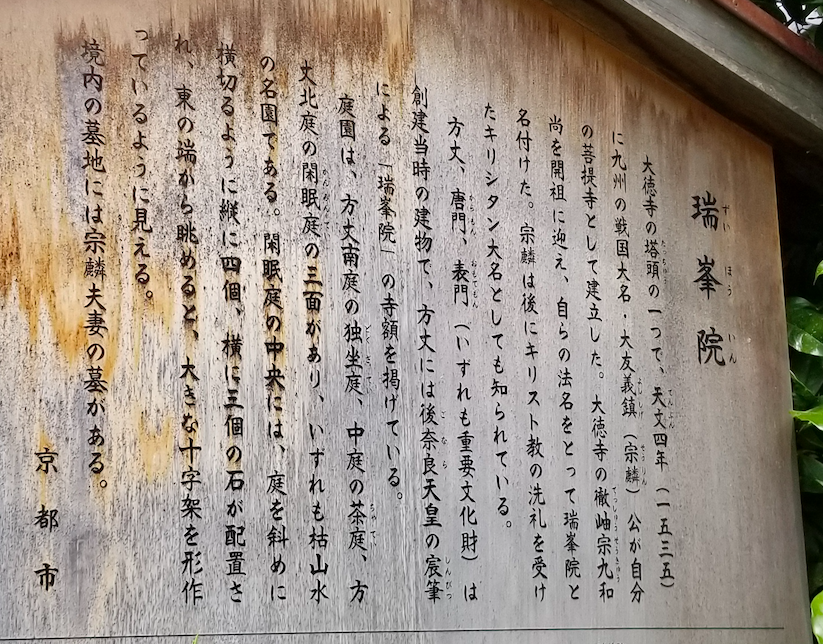 瑞峯院
大徳寺の塔頭の一つで、天文四年（一五三五）
に九州の戦国大名・大友義鎮（宗麟）公が自分
の菩提寺として建立した。大徳寺の徹岫宗九和
尚を開祖に迎え、自らの法名をとって瑞峯院と
名付けた。宗麟は後にキリスト教の洗礼を受け
たキリシタン大名としても知られている。
方丈、唐門、表門、（いずれも重要文化財）は
創建当時の建物で、方丈には後奈良天皇の宸筆
による「瑞峯院」の寺額を掲げている。
庭園は、方丈南庭の独坐庭、中庭の茶庭、方
丈北庭の閑眠庭の三面があり、いずれも枯山水
の名園である。閑眠庭の中央には、庭を斜めに
横切るように縦に四個、横に三個の石が配置さ
れ、東の端から眺めると、大きな十字架を形作
っているように見える。
境内の墓地には宗麟夫妻の墓がある。
京都市